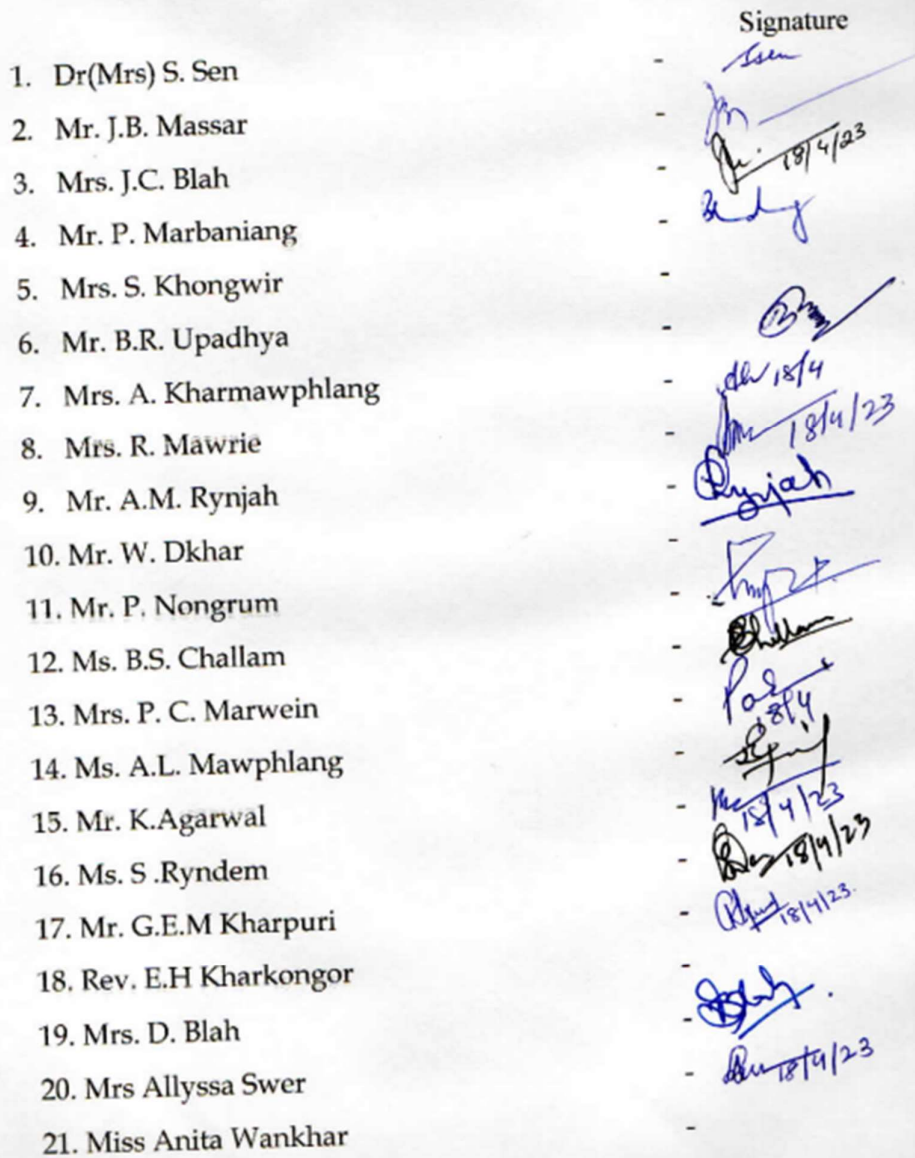 Signature
1. Dr(Mrs) S. Sen - Ssen
2. Mr. J.B. Massar -
3. Mrs. J.C. Blah - 18/4/23
4. Mr. P. Marbaniang -
5. Mrs. S. Khongwir -
6. Mr. B.R. Upadhya
7. Mrs. A. Kharmawphlang - 18/4
8. Mrs. R. Mawrie - 18/4/23
9. Mr. A.M. Rynjah - Rynjah
10. Mr. W. Dkhar -
11. Mr. P. Nongrum -
12. Ms. B.S. Challam - BChallam
13. Mrs. P. C. Marwein - 18/4
14. Ms. A.L. Mawphlang -
15. Mr. K.Agarwal - 18/4/23
16. Ms. S .Ryndem - 18/4/23
17. Mr. G.E.M Kharpuri - 18/4/23
18. Rev. E.H Kharkongor -
19. Mrs. D. Blah - DBlah
20. Mrs Allyssa Swer - 18/4/23
21. Miss Anita Wankhar -